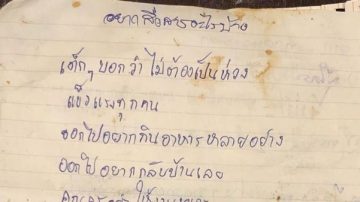 อยากสื่อสารอะไรบ้าง
เด็กๆ บอกว่าไม่ต้องเป็นห่วง
แข็งแรงทุกคน
ออกไปอยากกินอาหารหลายอย่าง
ออกไปอยากกลับบ้านเลย